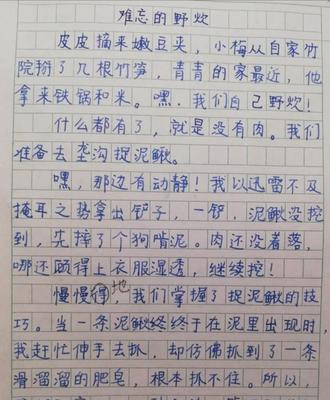 难忘的野炊
皮皮摘来嫩豆夹，小梅从自家竹
院掰了几根竹笋，青青的家最近，他
拿来铁锅和米。嘿，我们自己野炊！
什么都有了，就是没有肉。我们
准备去垄沟捉泥鳅。
嘿，那边有动静！我以迅雷不及
掩耳之势拿出铲子，一铲，泥鳅没挖
到，先摔了个狗啃泥。肉还没着落，
哪还顾得上衣服湿透，继续挖！
地
慢慢得，我们掌握了捉泥鳅的技
巧。当一条泥鳅终于在泥里出现时，
我赶忙伸手去抓，却仿佛抓到了一条
滑溜溜的肥皂，根本抓不住。所以，